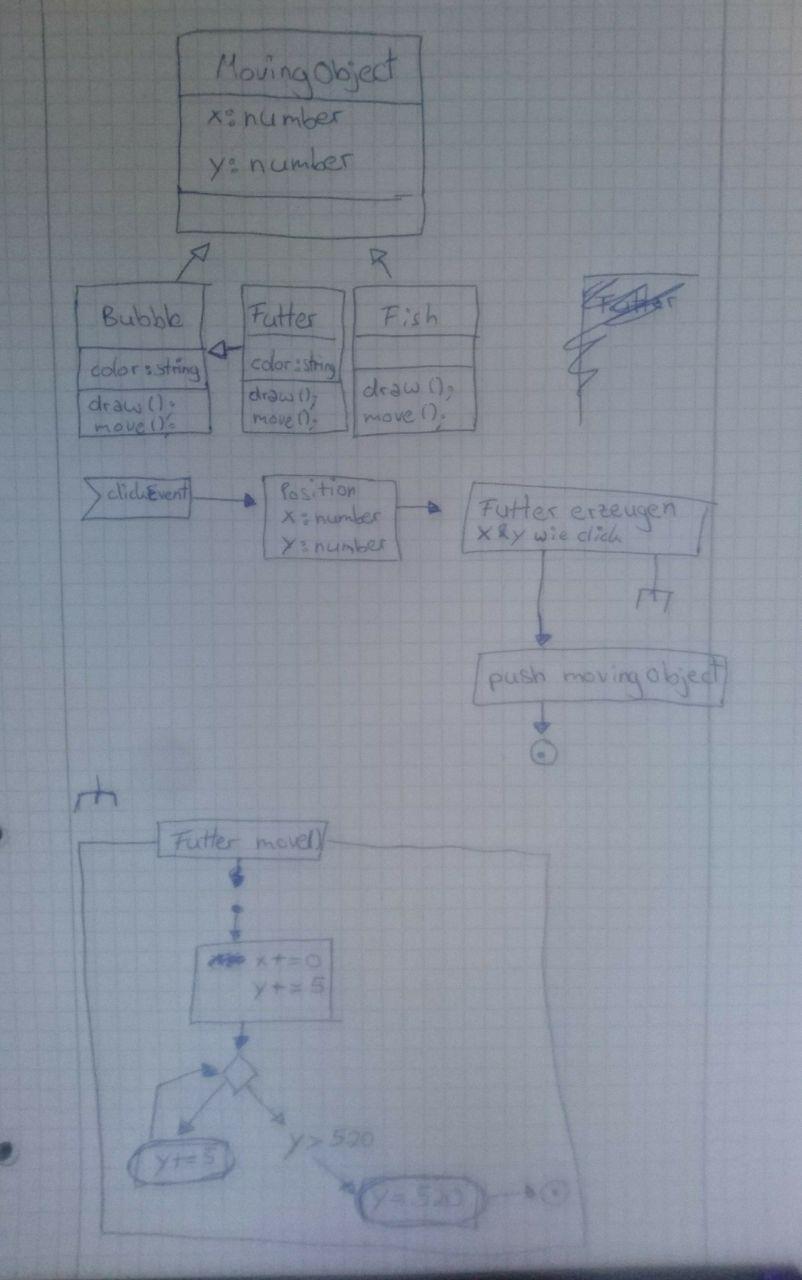 MovingObject
x: number
y: number
Bubble
color: string
draw();
move();
Futter
color: string
draw();
move();
Fish
draw();
move();
Futter
clickEvent
Position
x: number
y: number
Futter erzeugen
x & y wie click
push movingObject
Futter move()
x += 0
y += 5
y += 5
y > 520
y = 520